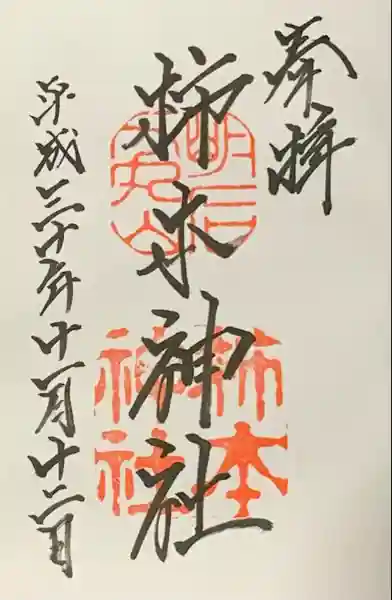 奉拝
柿本神社
平成三十年十一月十二日
柿本
神社